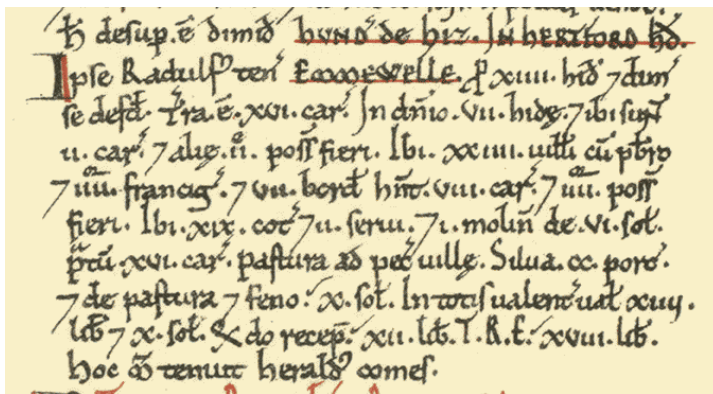 ħ desup. ē dimid̄ HUND' de HIZ. IN HERTFORD HD̄.
Ipse Radulf' ten' EMMEWELLE. P̱ XIIII. hid' ⁊ dim'
se defd̄. T'ra. ē. XVI. car'. In dn̄io. VII. hidę. ⁊ ibi sun̄t
II. car'. ⁊ alię. II. poss̄ fieri. Ibi. XXIIII. uilli cū pbr̄o
⁊ IIII. francig'. ⁊ VII. bord̄ hn̄t. VIII. car'. ⁊ IIII. poss̄
fieri. Ibi. XIX. cot' ⁊ II. serui. ⁊ I. molin̄ de. VI. sol̄.
p̄tū. XVI. car'. pastura ad pec' uillę. Silua. CC. porc'.
⁊ de pastura ⁊ feno. X. sol̄. In totis ualent' ual̄ XIIIJ.
lib̄ ⁊ X. sol̄. Q̄do recep̄. XII. lib̄. T. R. E. XVIII. lib̄.
hoc m̄ tenuit herald' comes.